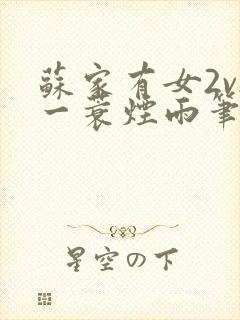 蘇家有女2v
一蓑煙雨筆
星空の下